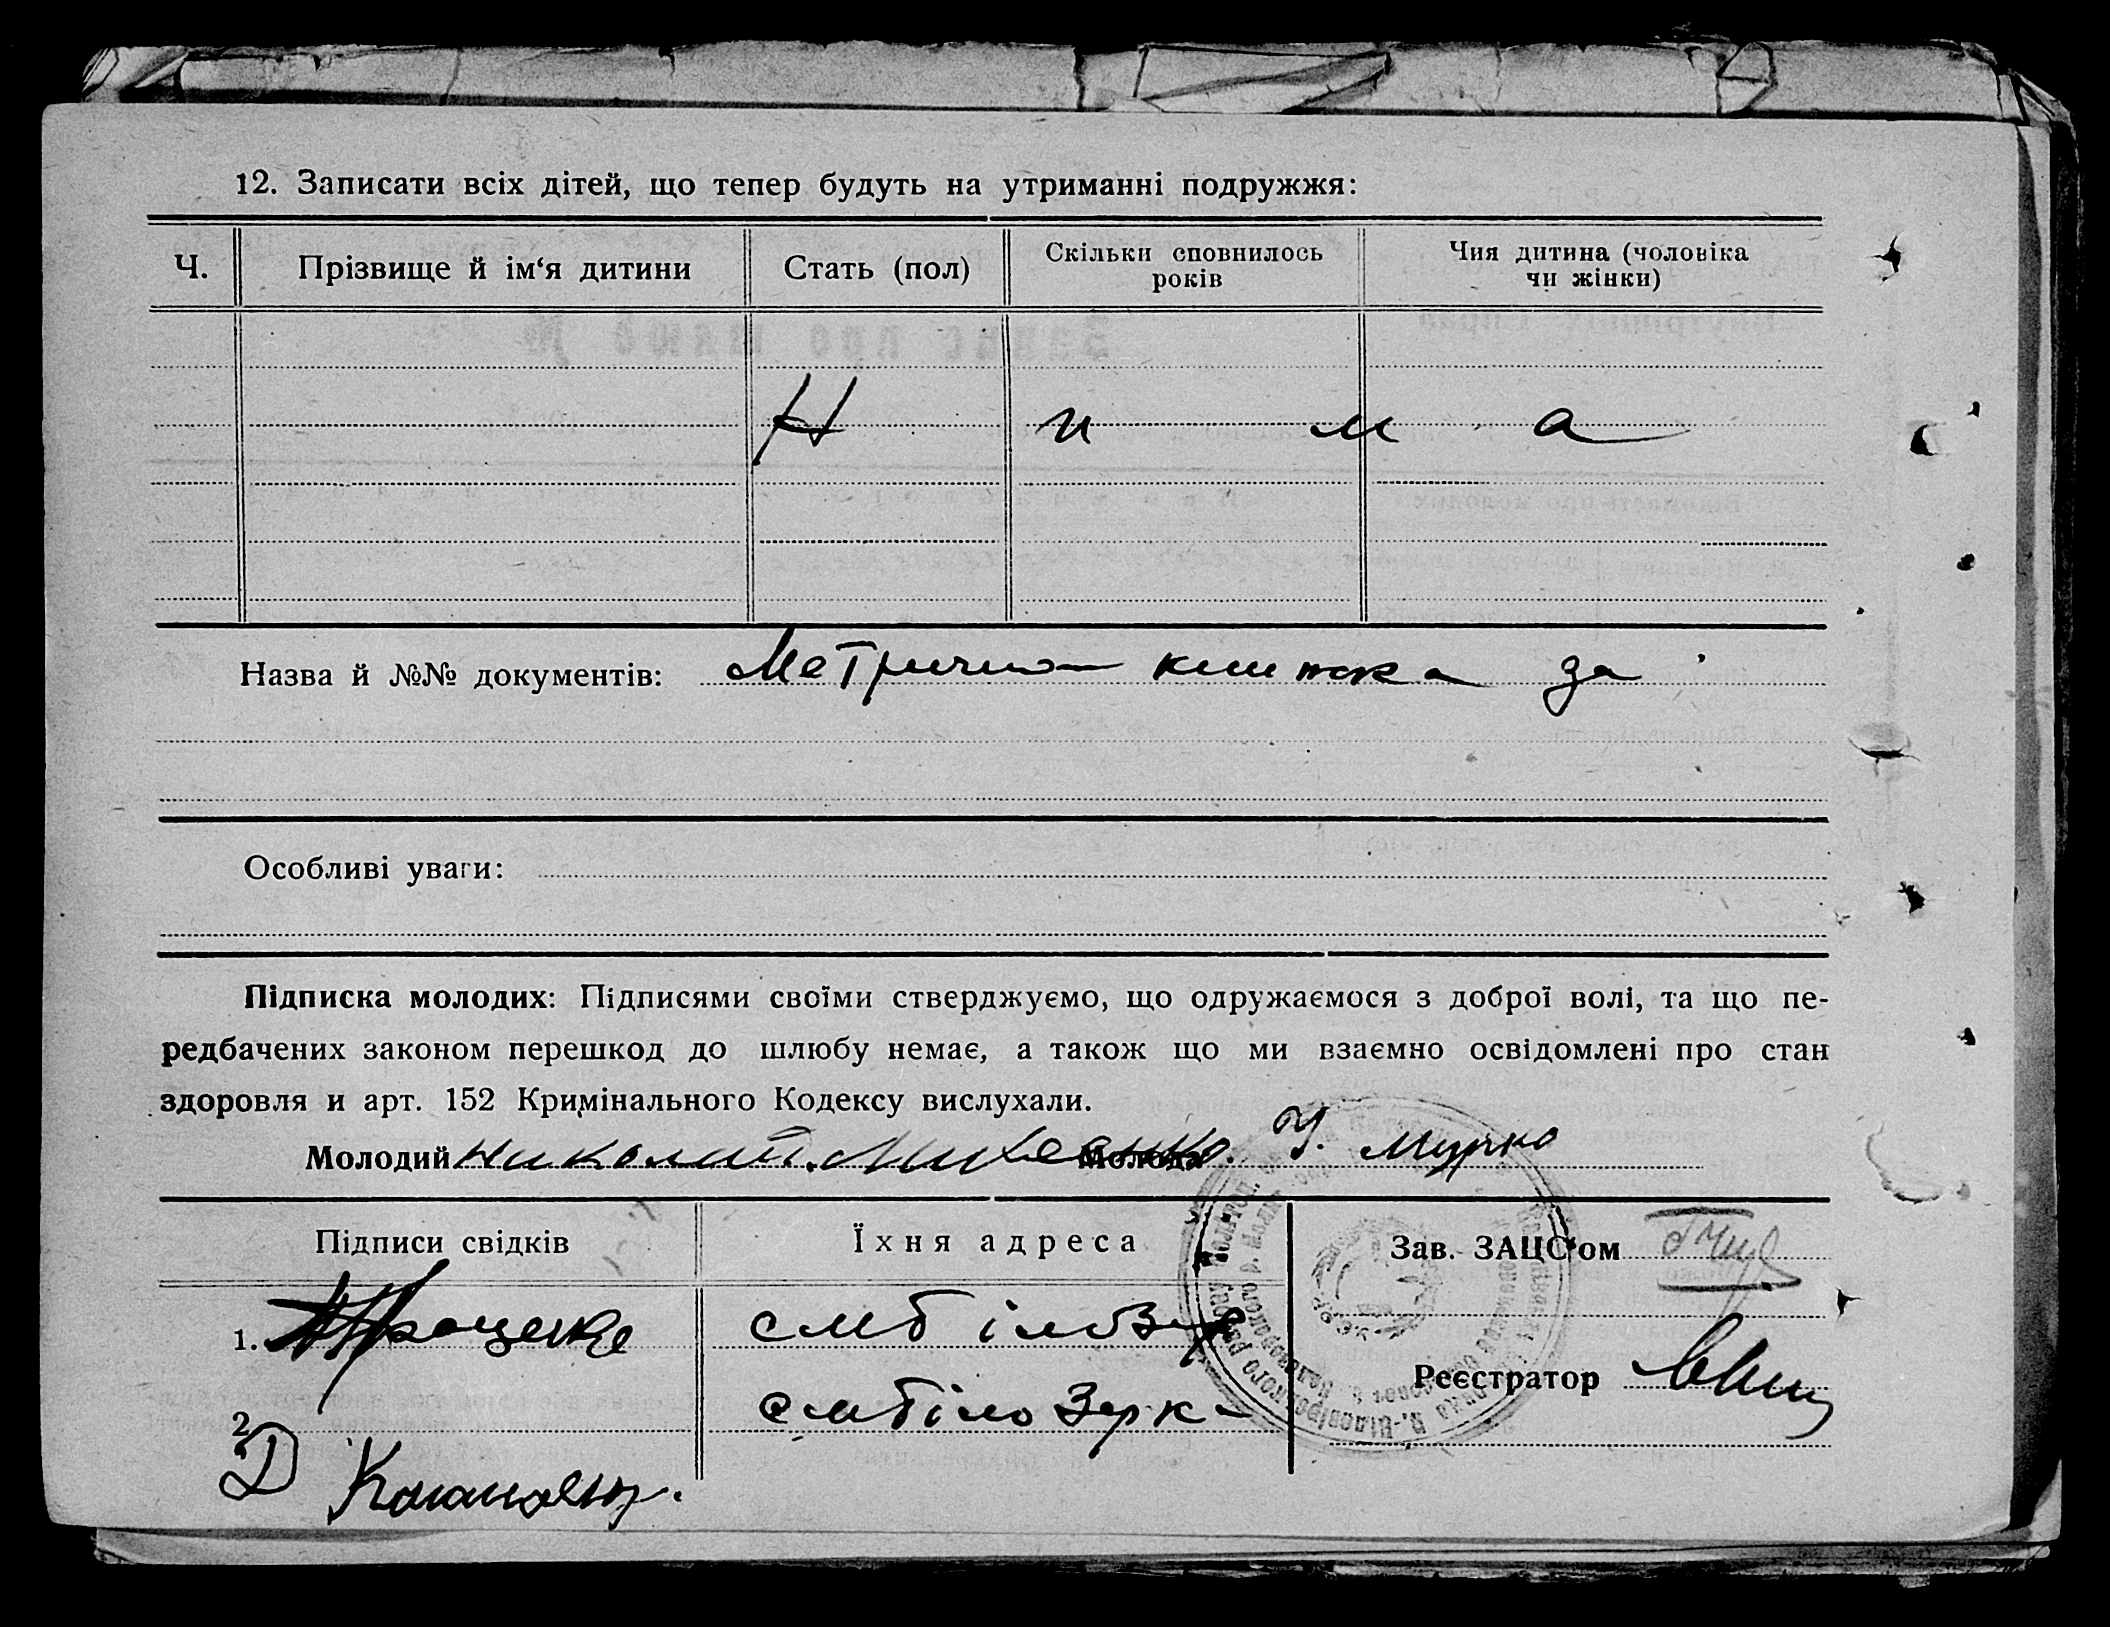 12. Записати всіх дітей, що тепер будуть на утриманні подружжя:
Ч. Прізвище й ім‘я дитини Стать (пол) Скільки сповнилось років Чия дитина (чоловіка чи жінки)
Н и м а
Назва й №№ документів: Метрична книжка за
Особливі уваги:
Підписка молодих: Підписями своїми стверджуємо, що одружаємося з доброї волі, та що пе-
редбачених законом перешкод до шлюбу немає, а також що ми взаємно освідомлені про стан
здоровля и арт. 152 Кримінального Кодексу вислухали.
Молодий Николай Михеенко Молода У. Мурко
Підписи свідків Їхня адреса Зав. ЗАЦС‘ом
1. Проценко
Реєстратор
2.
Д